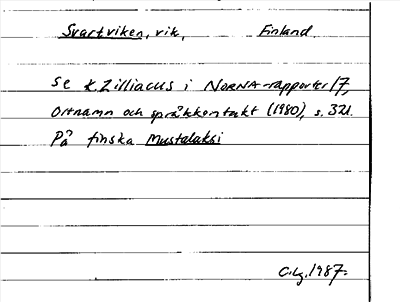 Svartviken, vik, Finland
Se K. Zilliacus i NORNA-rapporter 17,
Ortnamn och språkkontakt (1980), s. 321.
På finska Mustalaksi
C.Lg. 1987.